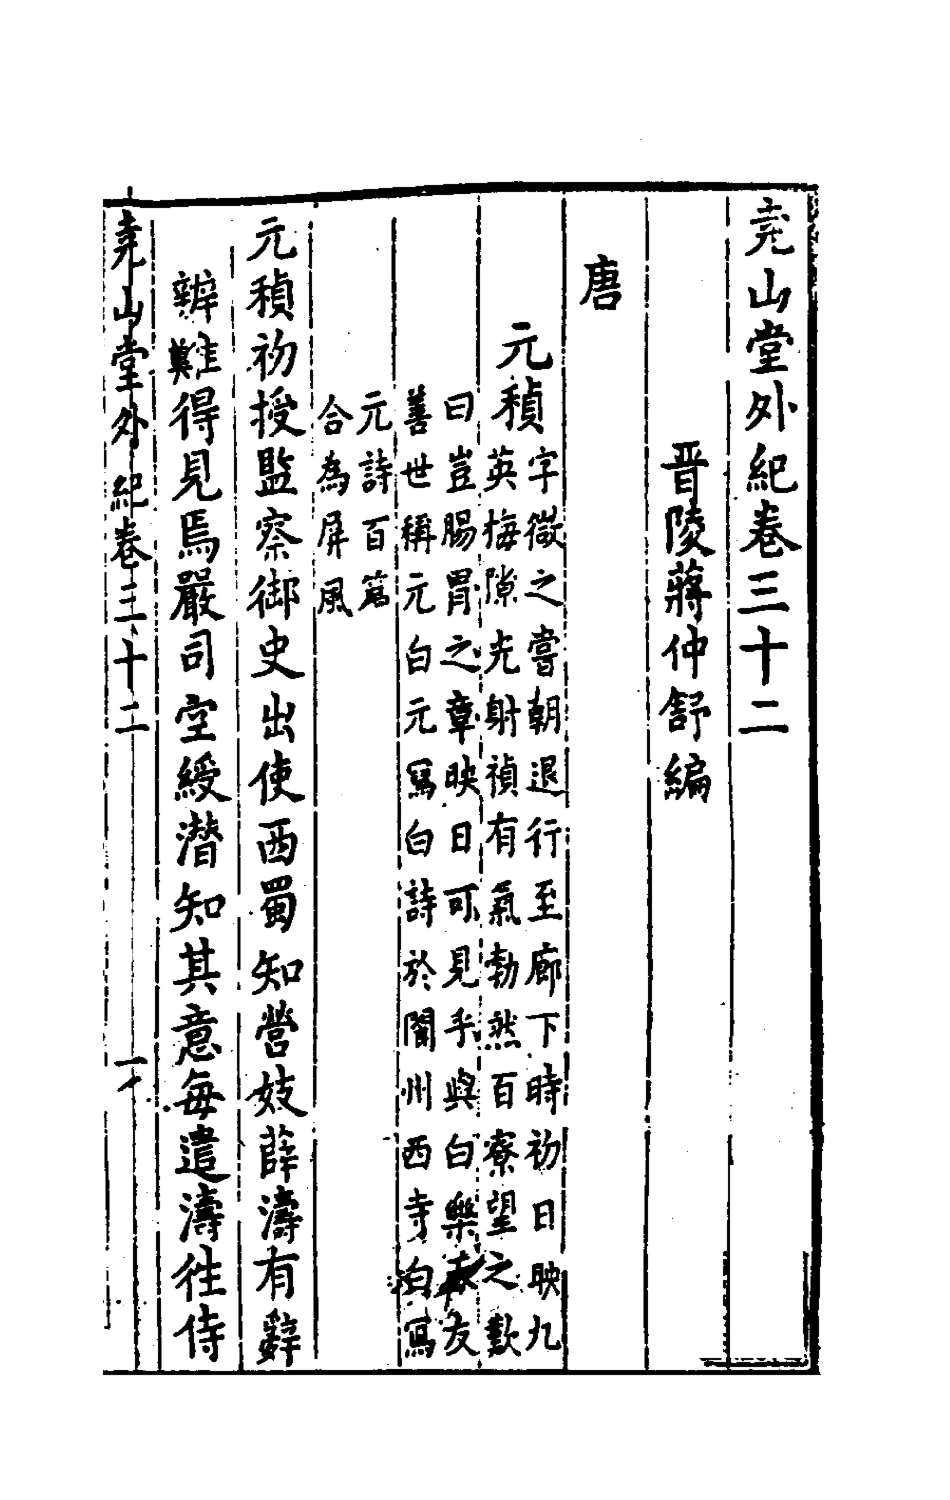 尭山堂外紀卷三十二
晋陵蔣仲舒編
唐
元稹
字微之嘗朝退行至廊下時初日映九
英梅隙光射稹有氣勃然百寮望之歎
曰豈腸胃之章映日可見乎與白樂友
善世稱元白元寫白詩於閬州西寺白寫
元詩百篇
合為屏風
元稹初授監察御史出使西蜀知營妓薛濤有辭
辨難得見焉嚴司空綬潛知其意每遣濤往侍
尭山堂外紀卷三十二
一